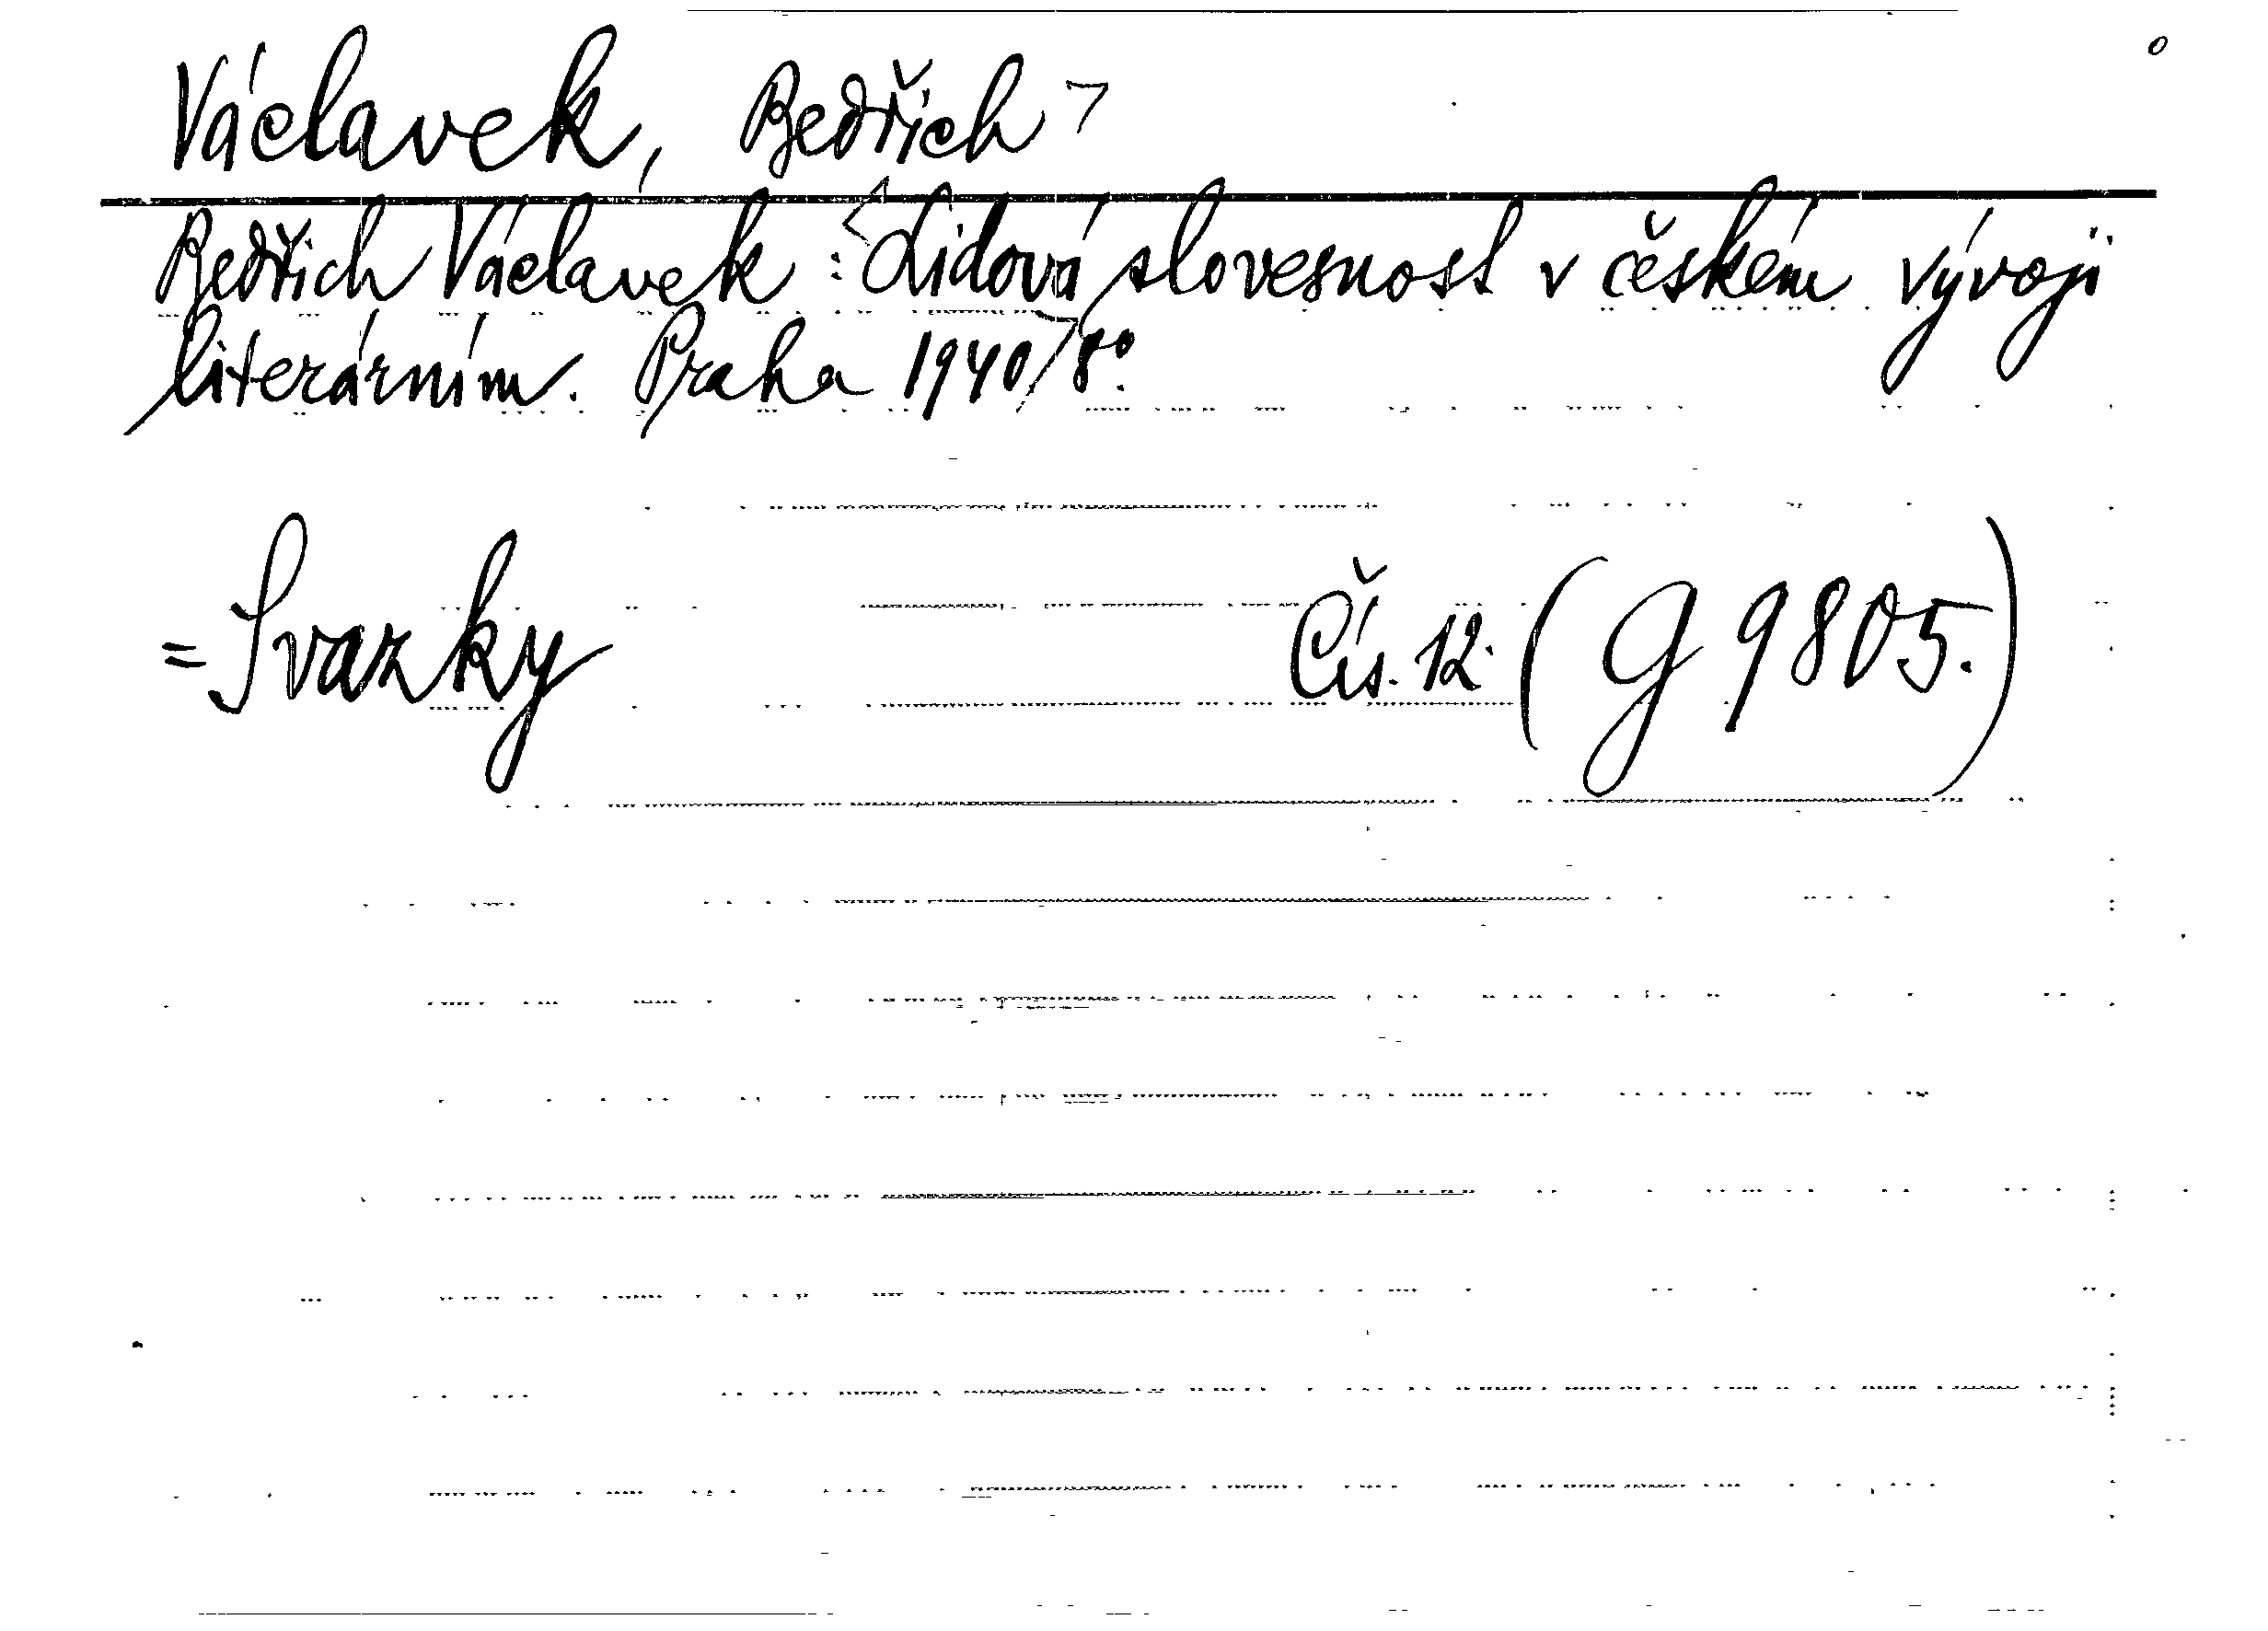 Václavek, Bedřich
Bedřich Václavek: Lidová slovesnost v českém vývoji
literárním. Praha 1940 8°.
= Svazky Čís. 12. (G 9805.)